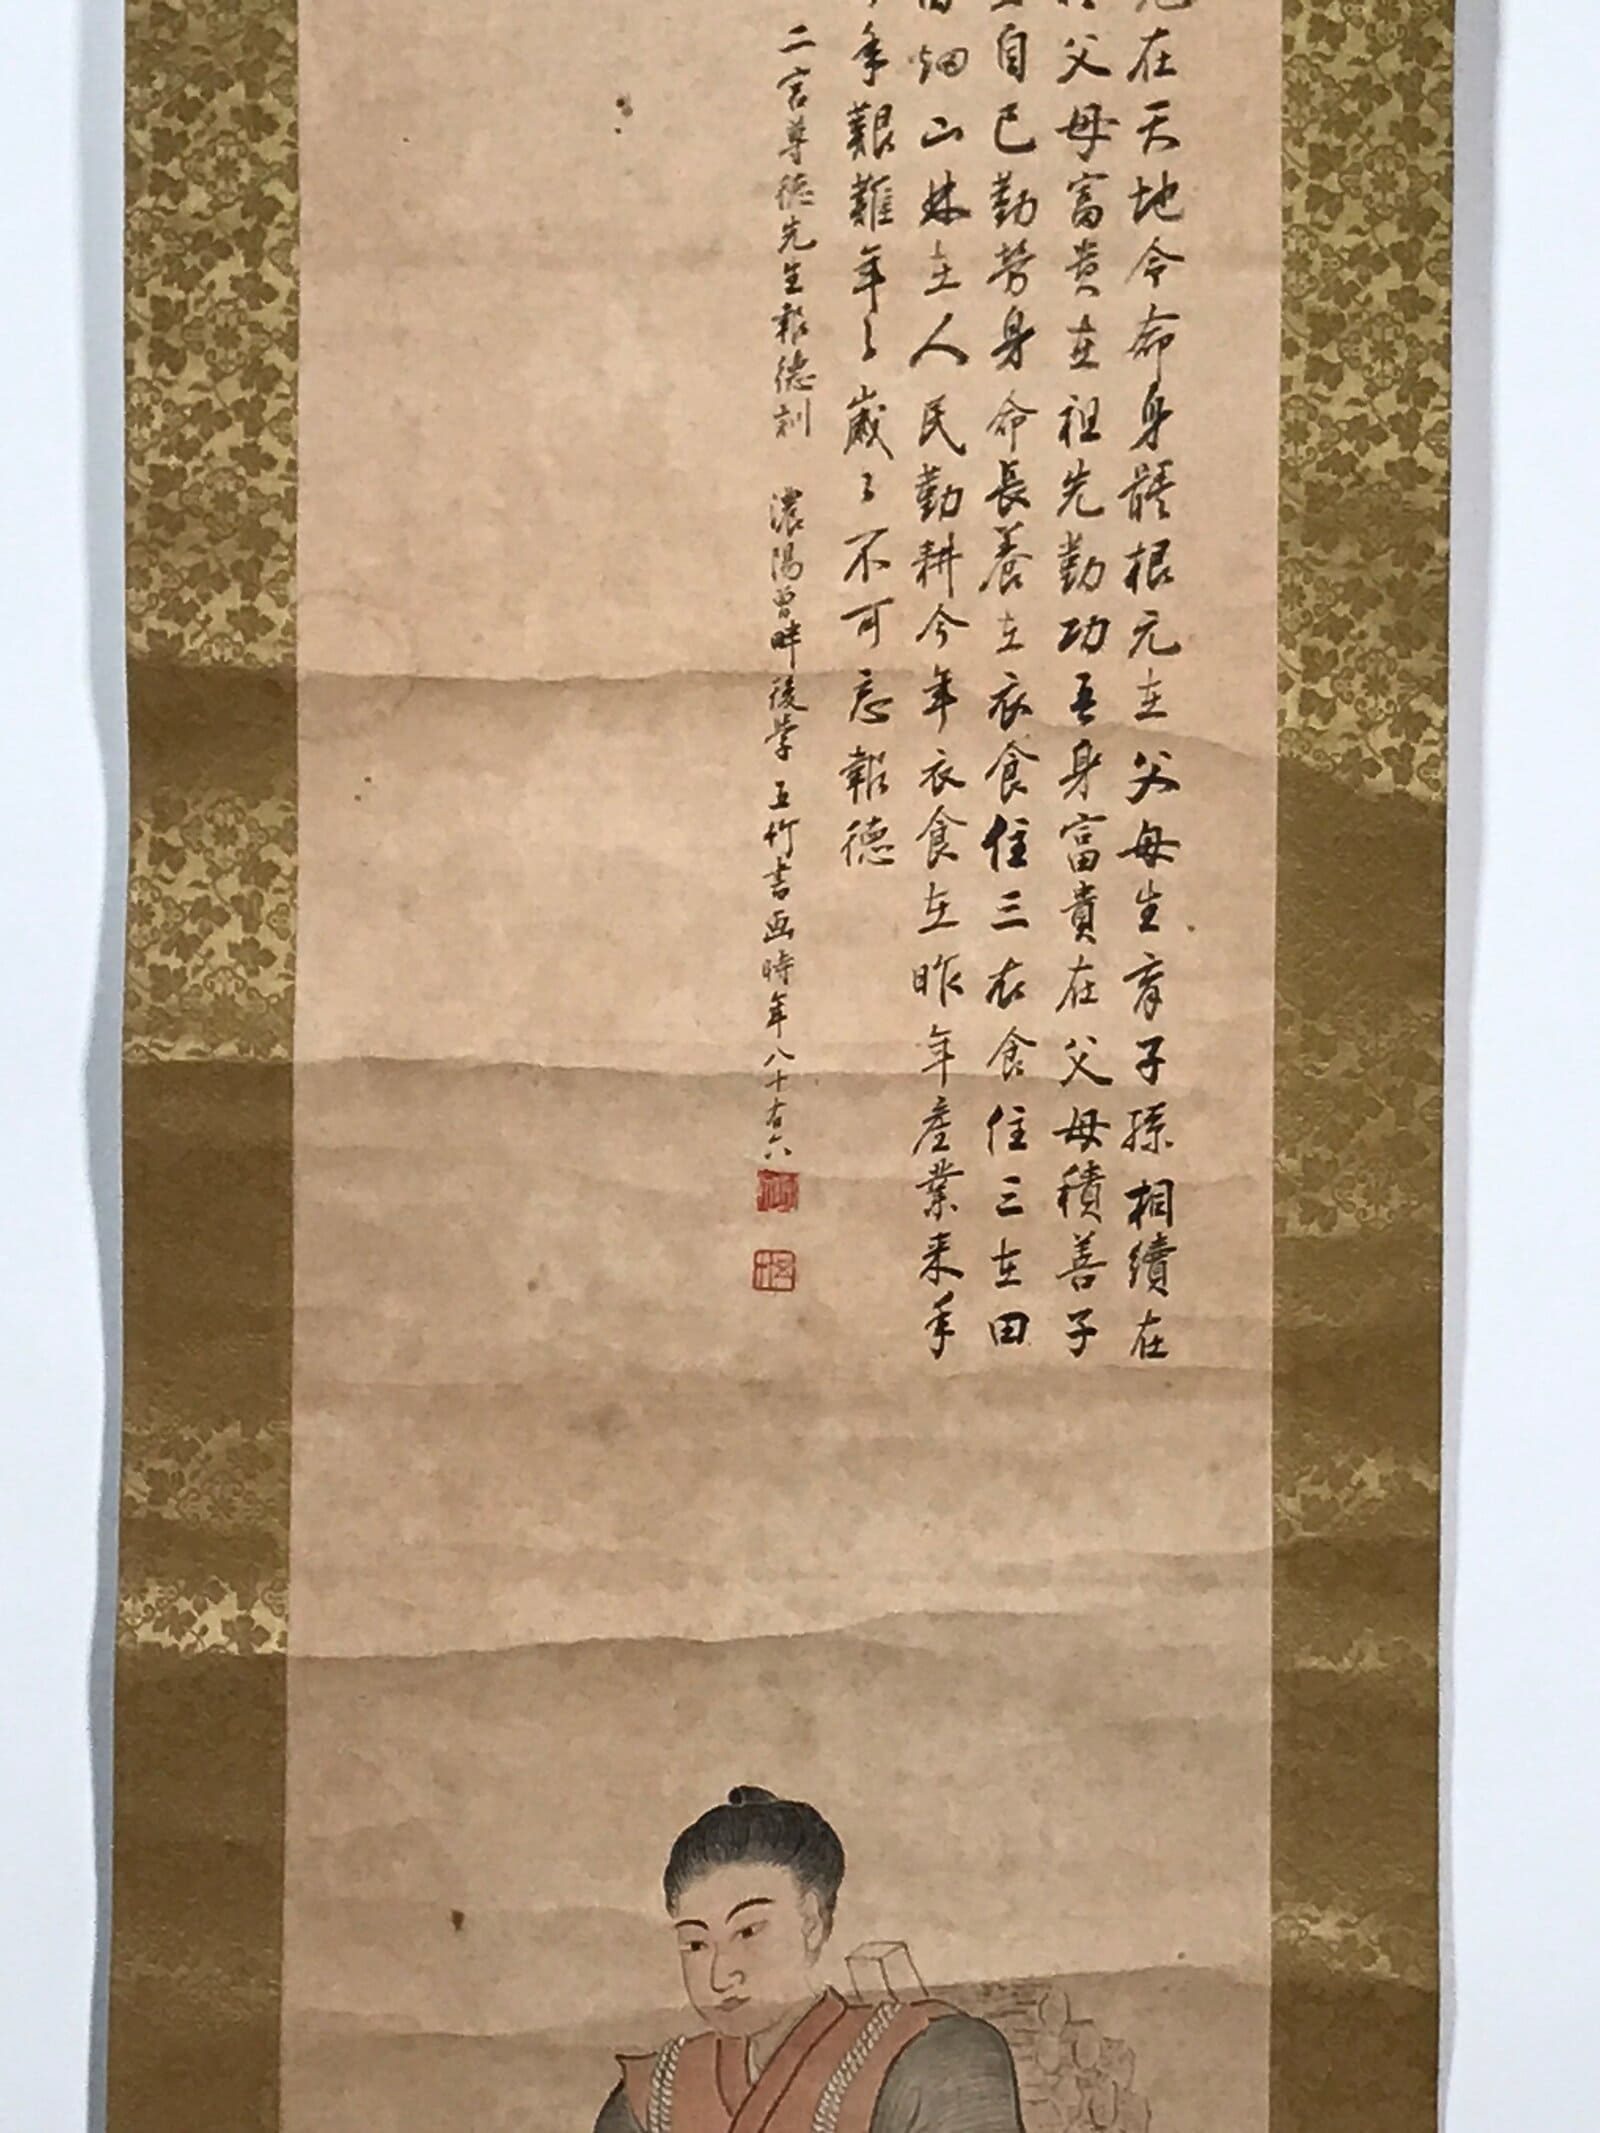 在天地令命身體根元在父母生育子孫相續在
父母富貴在祖先勤功吾身富貴在父母積善子
自己勤労身命長養在衣食住三衣食住三在田
畑山林在人民勤耕今年衣食在昨年産業来年
年艱難年々歳々不可忘報徳
二宮尊徳先生報徳訓 濃陽曽畔後学 五竹書画時年八十有六